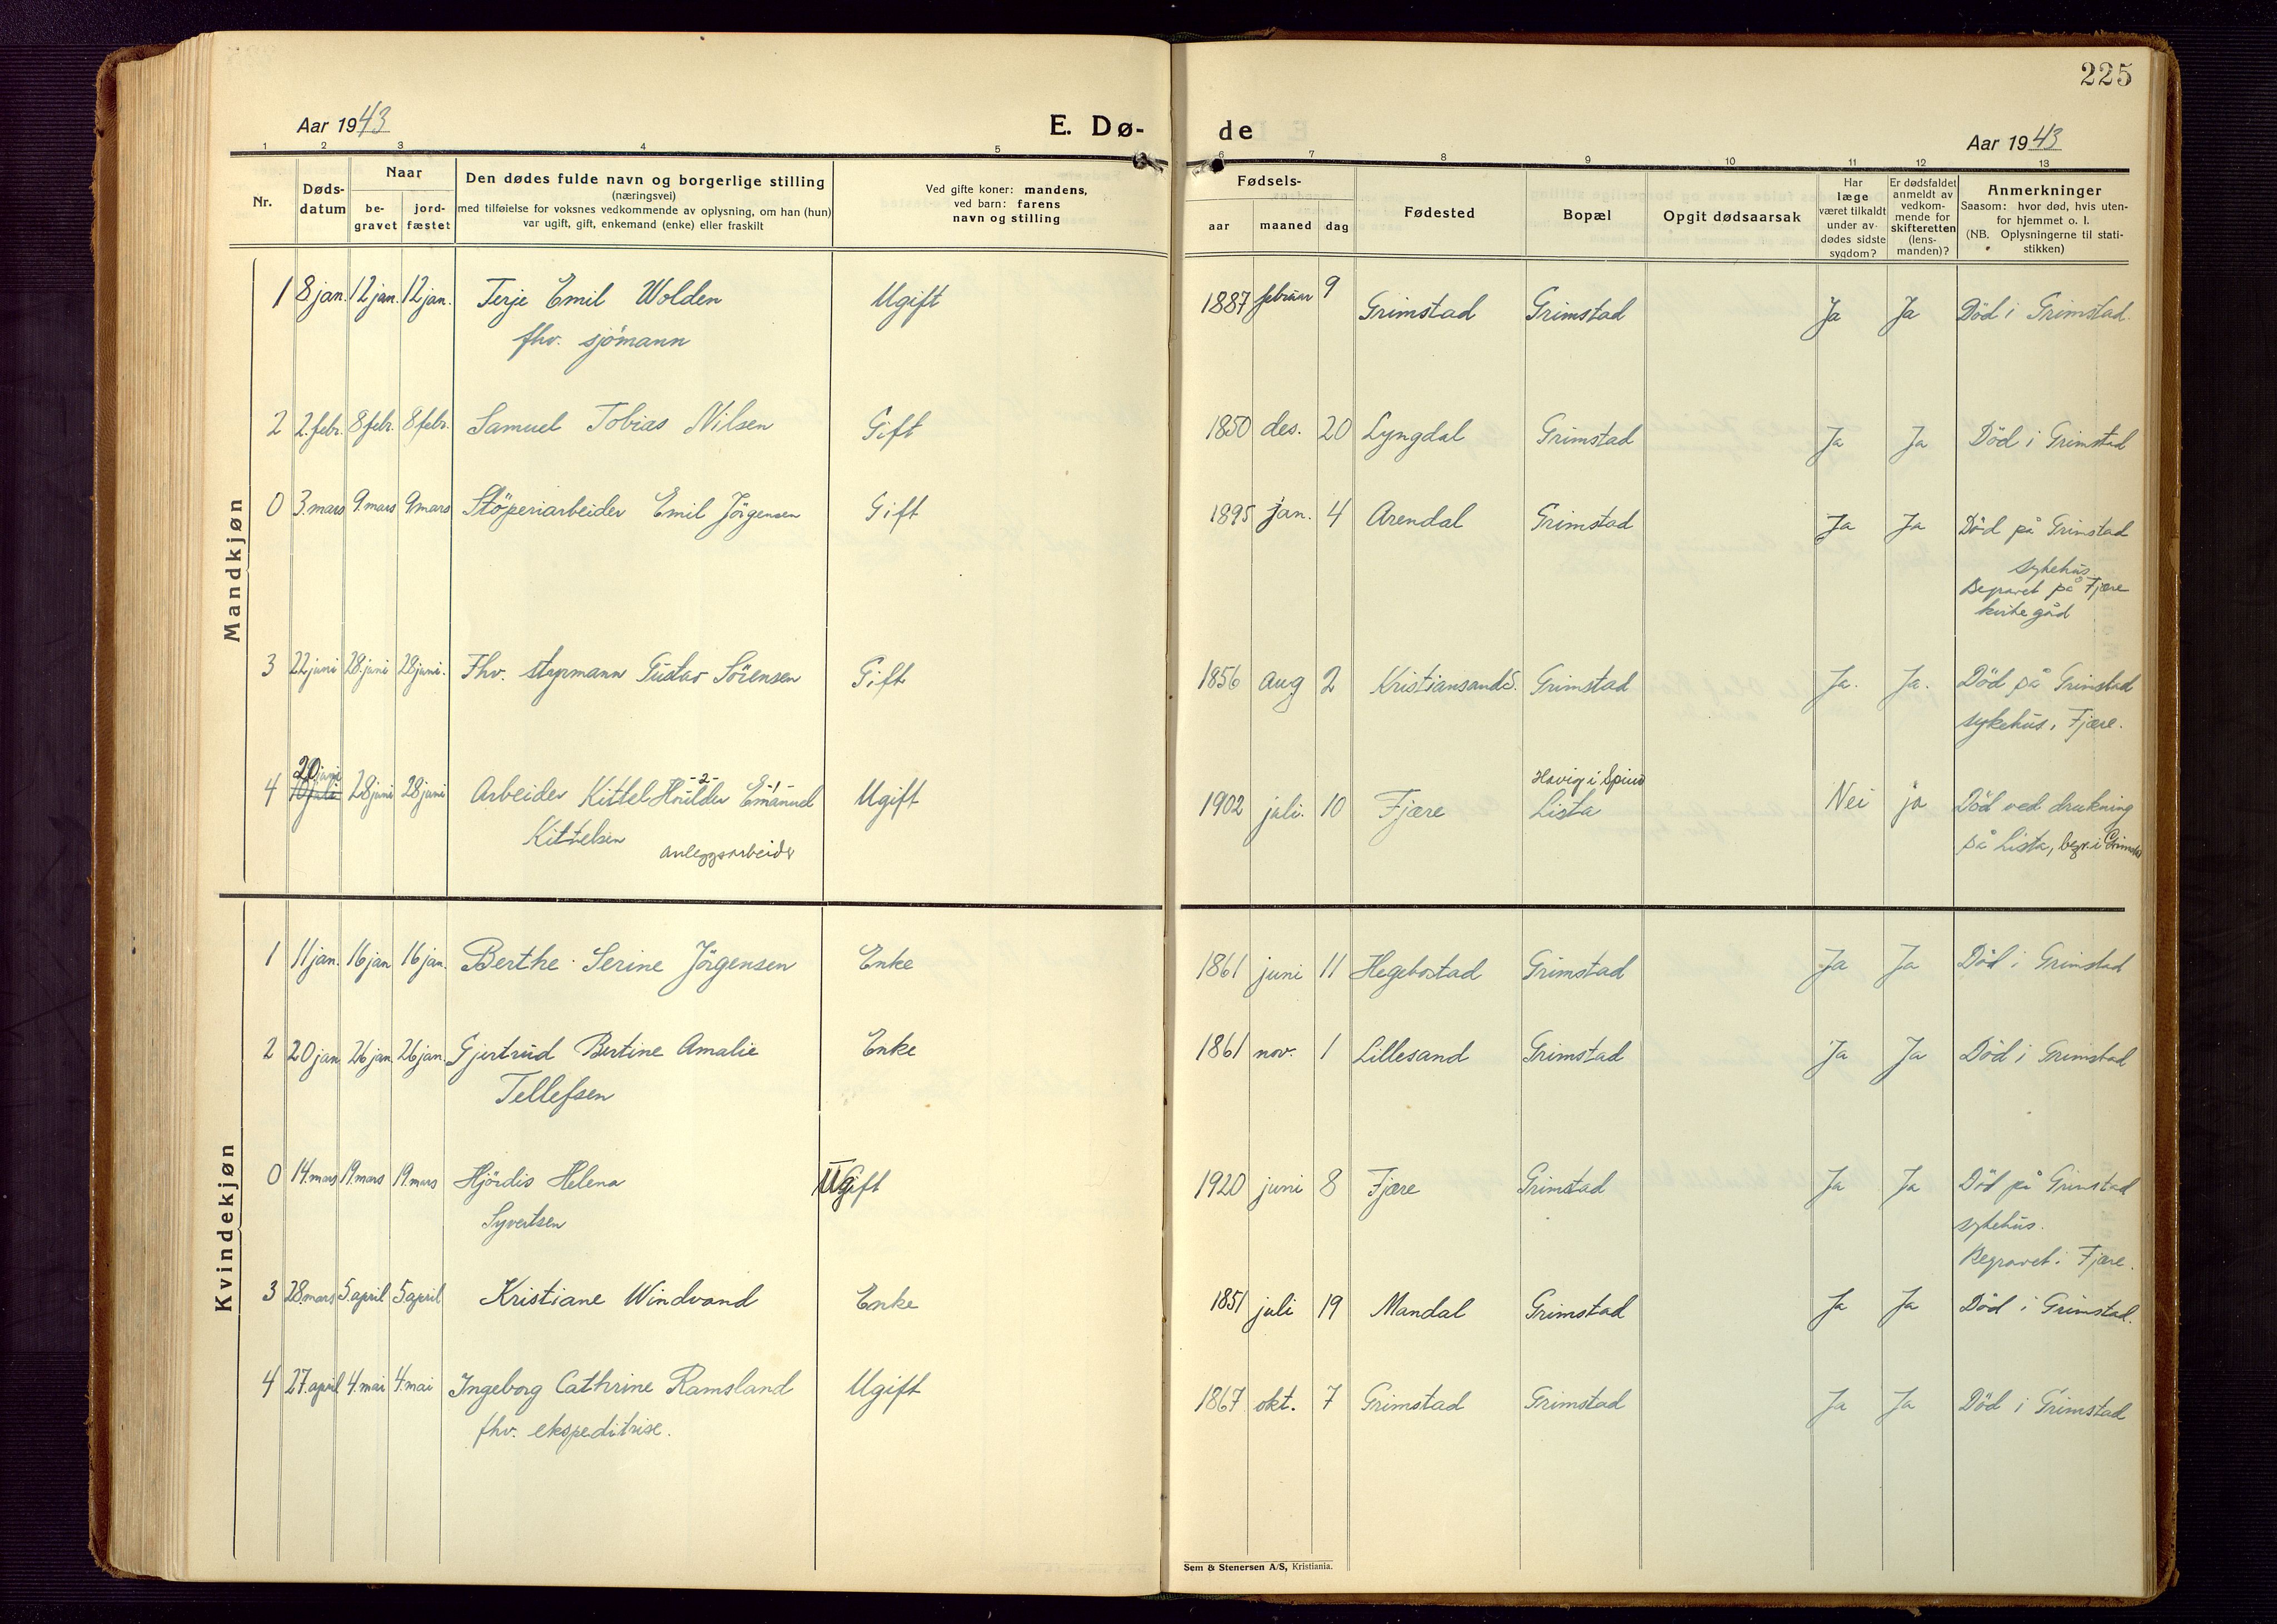 225
Aar 1943
E. Dø-
de
Aar 1943
1 2 3 4 5 6 7 8 9 10 11 12 13
Nr.
Døds-
datum
Naar
be-
gravet
jord-
fæstet
Den dødes fulde navn og borgerlige stilling
(næringsvei)
med tilføielse for voksnes vedkommende av oplysning, om han (hun)
var ugift, gift, enkemand (enke) eller fraskilt
Ved gifte koner: mandens,
ved barn: farens
navn og stilling
Fødsels-
aar maaned dag
Fødested
Bopæl
Opgit dødsaarsak
Har
læge
været tilkaldt
under av-
dødes sidste
sygdom?
Er dødsfaldet
anmeldt av
vedkom-
mende for
skifteretten
(lens-
manden)?
Anmerkninger
Saasom: hvor død, hvis uten-
for hjemmet o. l.
(NB. Oplysningerne til stati-
stikken)
Mandkjøn
1 8 jan. 12 jan. 12 jan. Terje Emil Wolden Ugift 1887 februar 9 Grimstad Grimstad Ja Ja Död i Grimstad.
fhv. sjömann
2 2. febr. 8 febr. 8 febr. Samuel Tobias Nilsen Gift 1850 des. 20 Lyngdal Grimstad Ja Ja Död i Grimstad
0 3. mars 9. mars 9 mars Stöperiarbeider Emil Jörgensen Gift 1895 jan. 4 Arendal Grimstad Ja Ja Död på Grimstad
sykehus
Begravet på Fjære
kirkegåd
3 22 juni 28. juni 28 juni. Fhv. styrmann Gustav Sörensen Gift 1856 aug 2 Kristiansand S. Grimstad Ja. Ja. Död på Grimstad
sykehus, Fjære.
20 juni -2- -1- Havig i Spind
4 10 juli 28 juni 28 juni Arbeider Kittel Houlder Emanuel Ugift 1902 juli. 10 Fjære Lista Nei ja Död ved drukning
Kittelsen på Lista, begr. i Grimstad
anleggsarbeider
Kvindekjøn
1 11 jan. 16 jan 16 jan. Berthe Serine Jörgensen Enke 1861 juni 11 Hegebostad Grimstad Ja Ja Död i Grimstad
2 20 jan 26 jan 26 jan. Gjertrud Bertine Amalie Enke 1861 nov. 1 Lillesand Grimstad Ja Ja Död i Grimstad
Tellefsen
0 14. mars 19. mars 19. mars Hjördis Helena Ugift 1920 juni 8 Fjære Grimstad Ja Ja Död på Grimstad
Syvertsen sykehus.
Begravet i Fjære.
3 28 mars 5. april 5 april Kristiane Windvand Enke 1851 juli 19 Mandal Grimstad Ja Ja Död i Grimstad.
4 27. april 4. mai 4. mai Ingeborg Cathrine Ramsland Ugift 1867 okt. 7 Grimstad Grimstad Ja Ja Död i Grimstad
fhv. ekspeditrise.
Sem & Stenersen A/S, Kristiania.